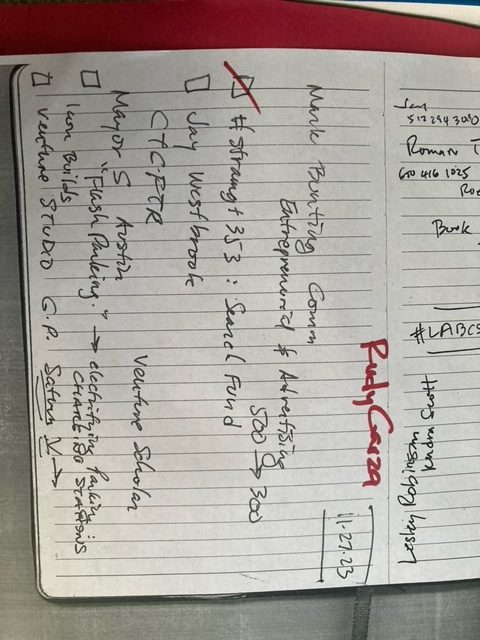 11.27.23
Rudy Garza
Mark Bunting Comm
Entrepreneurid & Advertising
500 → 300
#Strawngt 353 : Search Fund
Jay Westbrook
CTC-RTR
Venture Scholar
Mayor S Austin
"Flush Parking." → electrifying Parking :
CHARGING STATIONS
Iron Builds
Venture STUDIO G.P. Saturn V →
Jay
512 294 3090
Roman
650 416 1025
Book
#LABCS
Kendra Scott
Lesley Robinson